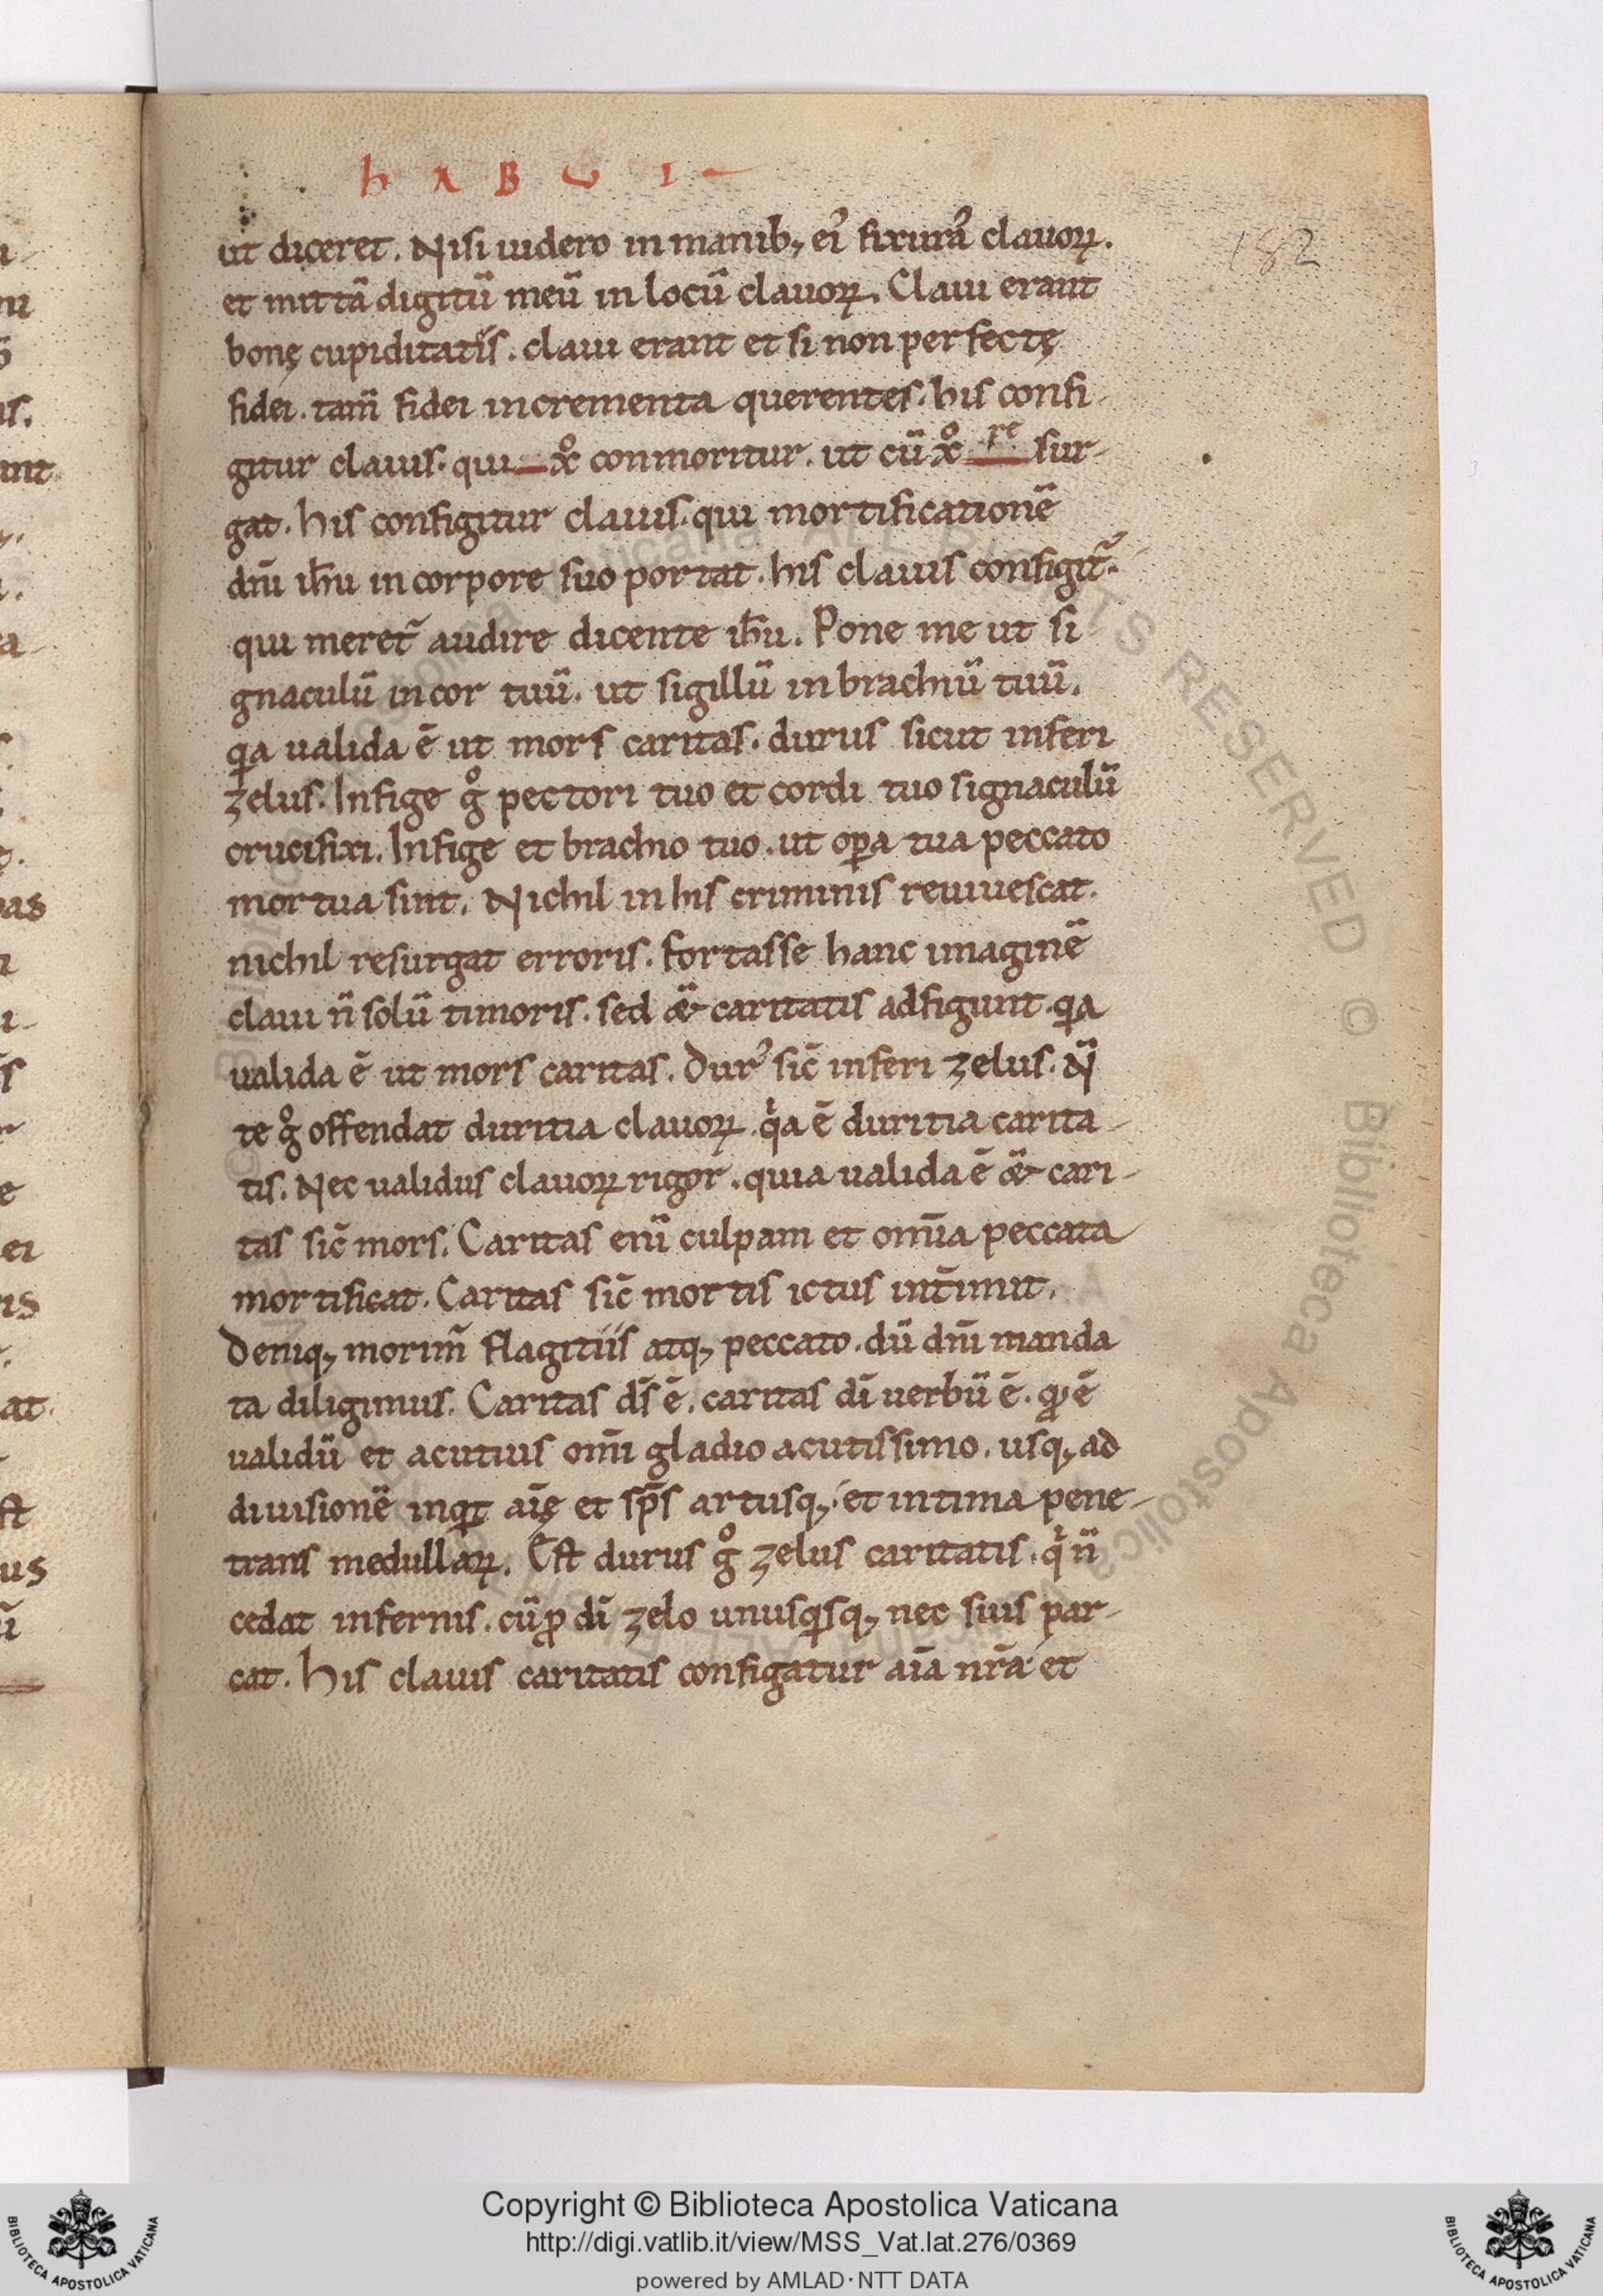 h A B U I
182
ut diceret. Nisi uidero in manib; ei᾽ fixurā clauoꝝ.
et mittā digitū meū in locū clauoꝝ. Claui erant
bonę cupiditatis. claui erant et si non perfectę
fidei. tam̄ fidei incrementa querentes. his confi-
gitur clauis. qui xͦ conmoritur. ut cū xͦ re sur-
gat. his configitur clauis. qui mortificationē
dn̄i ih̄u in corpore suo portat. his clauis configit᷑.
qui meret᷑ audire dicente ih̄u. Pone me ut si
gnaculū in cor tuū. ut sigillū in brachiū tuū.
qa ualida ē ut mors caritas. durus sicut inferi
zelus. Infige gͦ pectori tuo et cordi tuo signaculū
crucifixi. Infige et brachio tuo. ut oꝑa tua peccato
mortua sint. Nichil in his criminis reuiuescat.
nichil resurgat erroris. fortasse hanc imaginē
claui n̄ solū timoris. sed & caritatis adfigunt. qa
ualida ē ut mors caritas. Dur᾽ sic̄ inferi zelus. N̄
te gͦ offendat duritia clauoꝝ. qⁱa ē duritia carita-
tis. Nec ualidus clauoꝝ rigor. quia ualida ē & cari-
tas sic̄ mors. Caritas enī culpam et om̄ia peccata
mortificat. Caritas sic̄ mortis ictus int̄imit.
Deniq; morim̄ flagitiis atq; peccato. dū dn̄i manda
ta diligimus. Caritas ds̄ ē. caritas dī uerbū ē. qđ ē
ualidū et acutius om̄i gladio acutissimo. usq; ad
diuisionē inqͥt aīę et sp̄s artusq; et intima pene-
trans medullaꝝ. Est durus gͦ zelus caritatis. qⁱ n̄
cedat infernis. cū ꝓ dī zelo unusqͥsq; nec suis par-
cat. his clauis caritatis configatur aīa nr̄a et
Copyright © Biblioteca Apostolica Vaticana
http://digi.vatlib.it/view/MSS_Vat.lat.276/0369
powered by AMLAD·NTT DATA
BIBLIOTECA APOSTOLICA VATICANA
BIBLIOTECA APOSTOLICA VATICANA